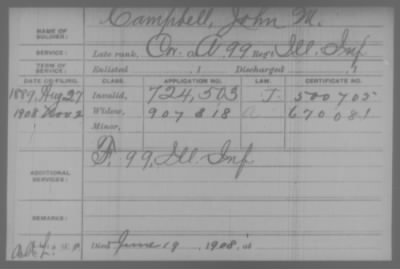 NAME OF SOLDIER: Campbell, John M.
SERVICE: Late rank, Co. A, 99 Reg't Ill. Inf
TERM OF SERVICE: Enlisted , 1 Discharged , 1
DATE OF FILING. CLASS. APPLICATION NO. LAW. CERTIFICATE NO.
1889, Aug 27 Invalid, 724,503 J. 500705
1908 Nov 2 Widow, 907818 A 670081
Minor,
ADDITIONAL SERVICES: F, 99, Ill. Inf
REMARKS:
Died June 19, 1908, at